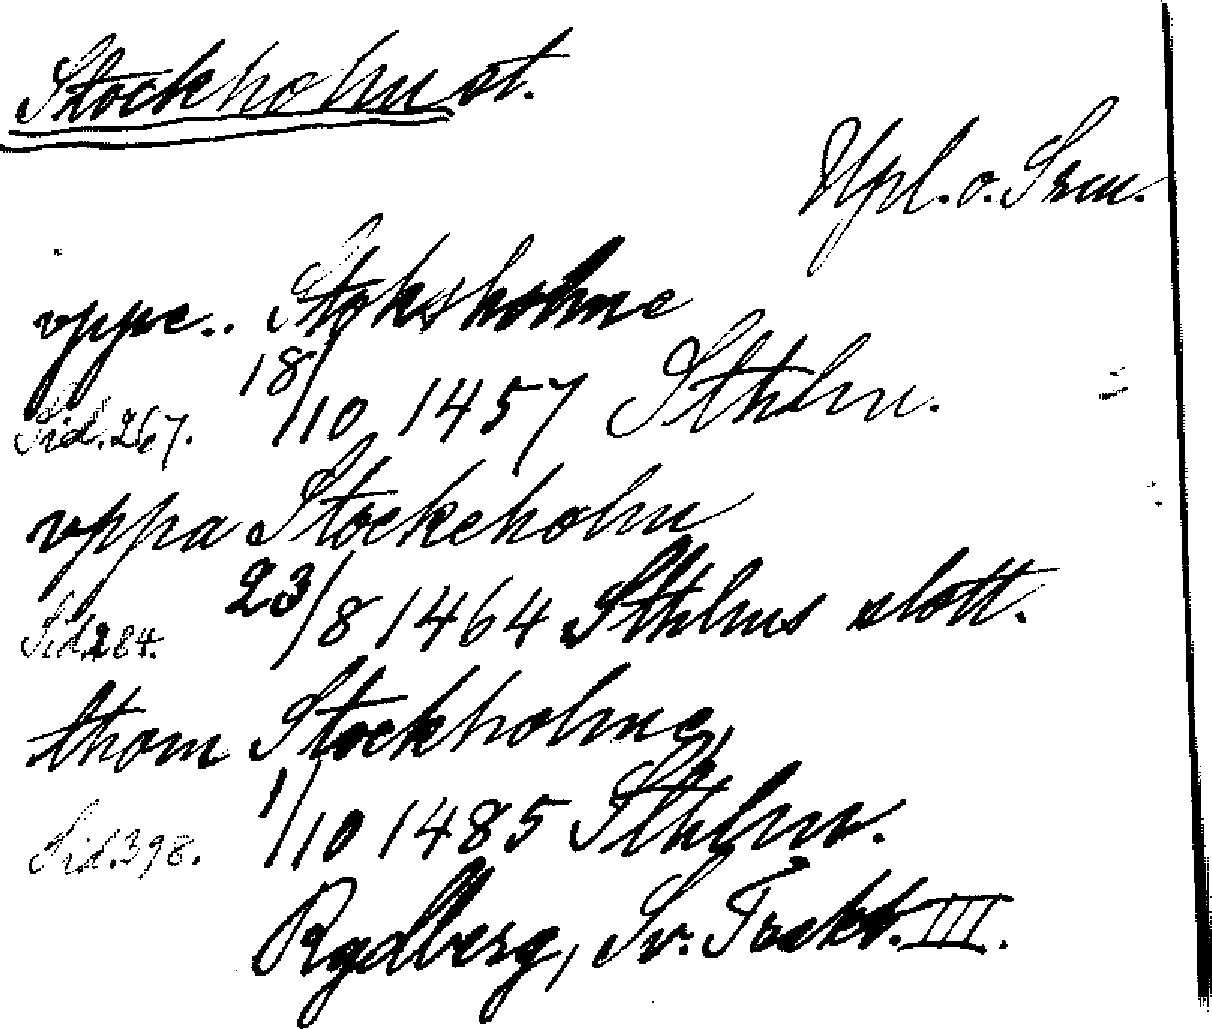 Stockholm st.
Upl. o. Srm.
vppe.. Stoksholme
18/10 1457 Sthlm.
Sid. 267.
vppa Stockeholm
23/8 1464 Sthlms slott.
Sid. 284.
thom Stockholme,
1/10 1485 Sthlm.
Sid. 398.
Rydberg, Sv. Trakt. III.